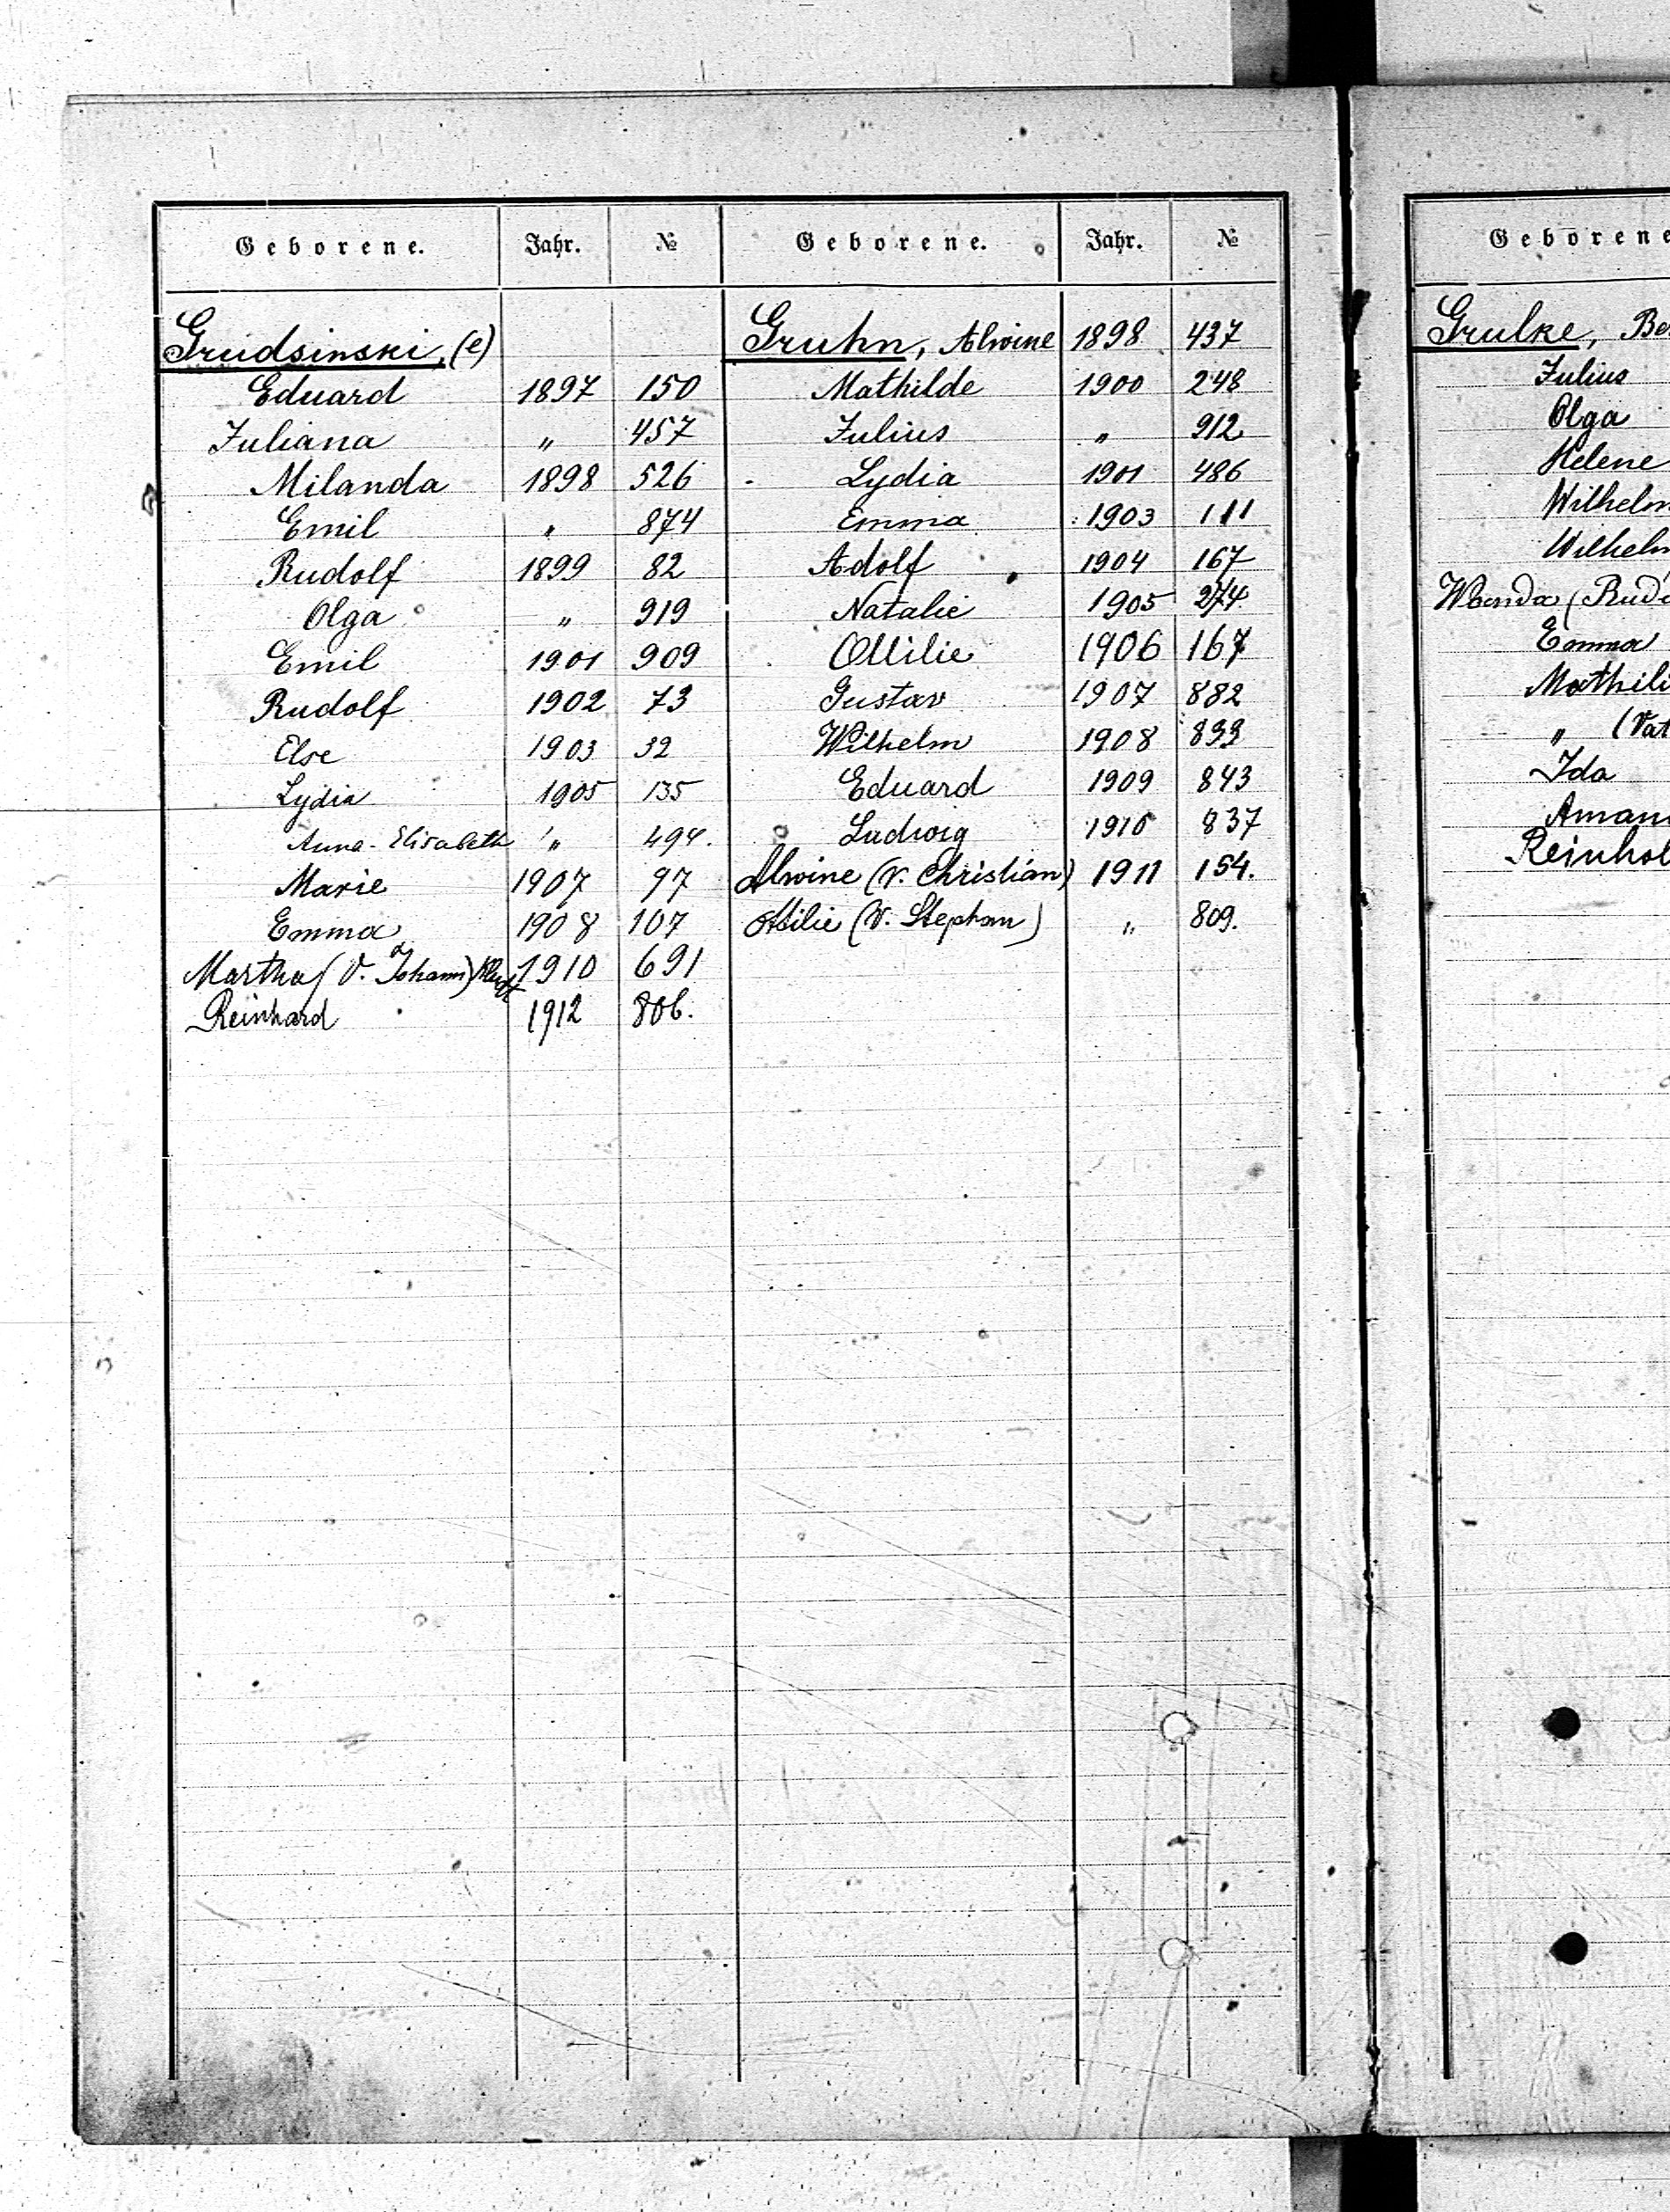 Geborene. Jahr. №
Grudsinski, (e)
Eduard 1897 150
Juliana " 457
Milanda 1898 526
Emil " 874
Rudolf 1899 82
Olga " 919
Emil 1901 909
Rudolf 1902 73
Else 1903 32
Lydia 1905 135
Anna-Elisabeth " 494.
Marie 1907 97
Emma 1908 107
Martha (V. Johann) 1910 691
Reinhard 1912 806.
Geborene. Jahr. №
Gruhn, Alwine 1898 437
Mathilde 1900 248
Julius " 912
Lydia 1901 486
Emma 1903 111
Adolf 1904 167
Natalie 1905 274
Ottilie 1906 167
Gustav 1907 882
Wilhelm 1908 833
Eduard 1909 843
Ludwig 1910 837
Alwine (V. Christian) 1911 154.
Ottilie (V. Stephan) " 809.
Geborene
Grulke, Be
Julius
Olga
Helene
Wilhelm
Wilhelm
Wanda (Rud
Emma
Mathil
" (Vat
Ida
Aman
Reinhol